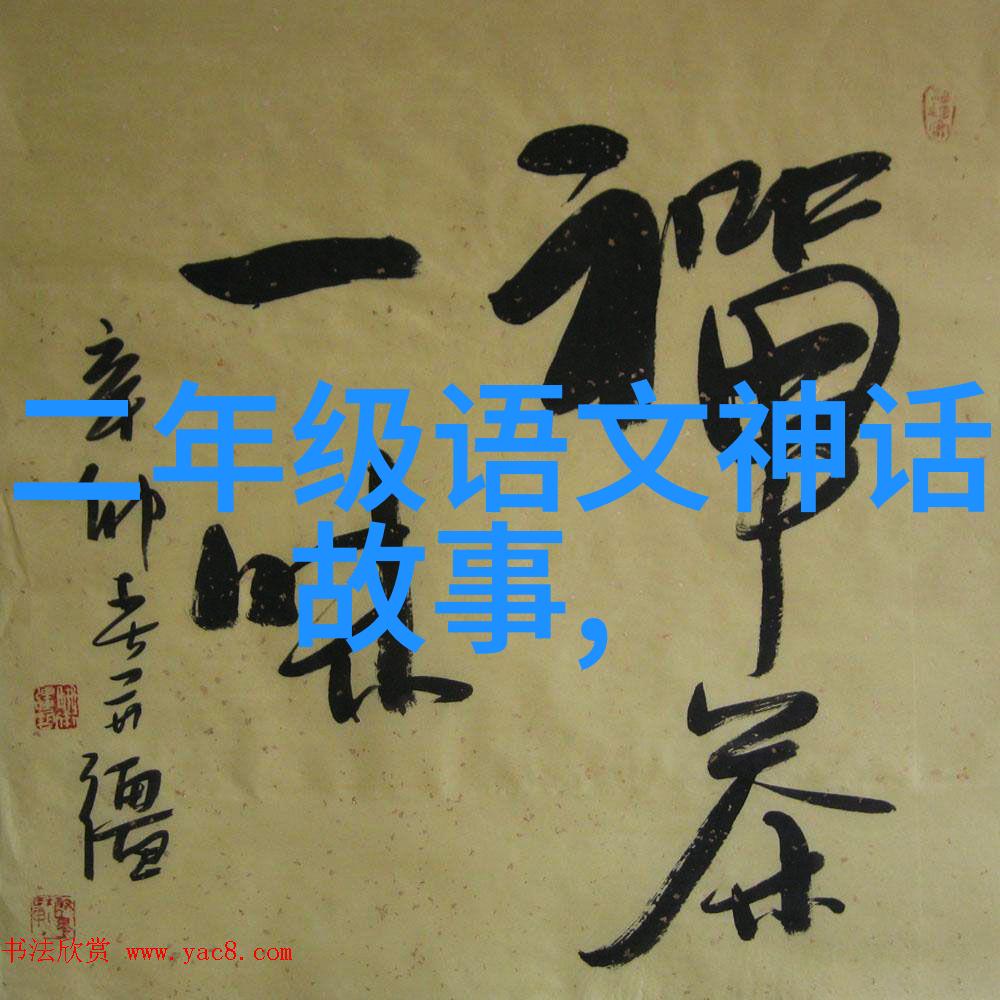 二年级语文神话
故事,
禅茶
一味
辛卯春一册
书法欣赏 www.yac8.com